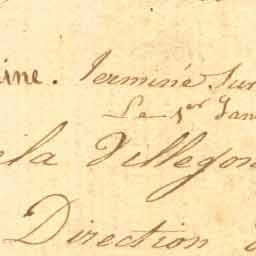 ine. Terminé Sur
Le 1er Jan
ela Villegon
Direction